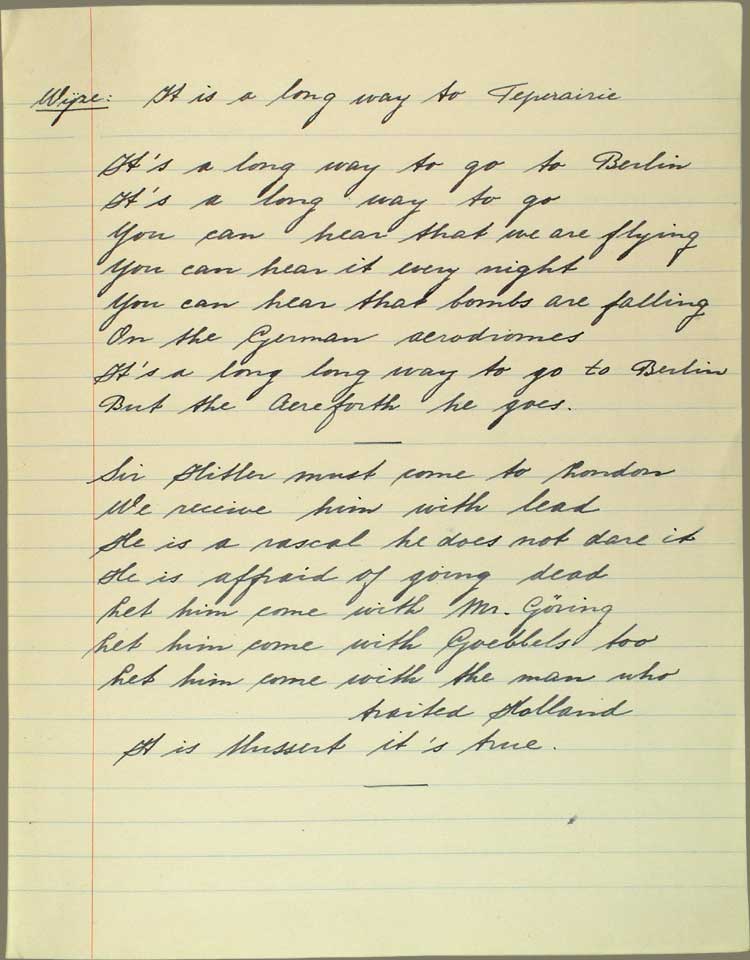 Wijze: It is a long way to Teperairie
It's a long way to go to Berlin
It's a long way to go
You can hear that we are flying
You can hear it every night
You can hear that bombs are falling
On the German aerodromes
It's a long long way to go to Berlin
But the Aereforth he goes.
Sir Hitler must come to London
We receive him with lead
He is a rascal he does not dare it
He is affraid of going dead
Let him come with Mr. Göring
Let him come with Goebbels too
Let him come with the man who
traited Holland
It is Mussert it's true.